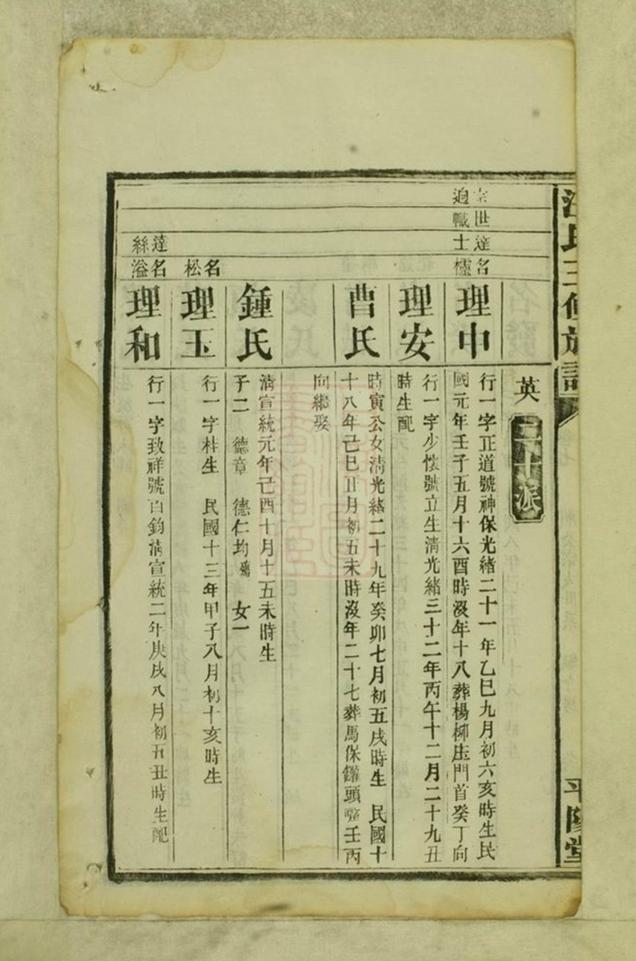 汪氏三修族譜
平陽堂
英
二十派
名世達名
士
理中
行一字正道號神保光緒二十一年乙巳九月初六亥時生民
國元年壬子五月十六酉時沒年十八葬楊柳坵門首癸丁向
理安
行一字少懷號立生清光緒三十二年丙午十二月二十九丑
時生配
曹氏
時寅公女清光緒二十九年癸卯七月初五戌時生 民國十
十八年己巳正月初五未時沒年二十七葬馬保鑵頭 壬丙
向繼娶
鍾氏
清宣統元年己酉十月十五未時生
子二 德章 德仁均 女一
名松
理玉
行一字桂生 民國十三年甲子八月初十亥時生
達絲
名溢
理和
行一字致祥號百鈞清宣統二年庚戌八月初五丑時生配